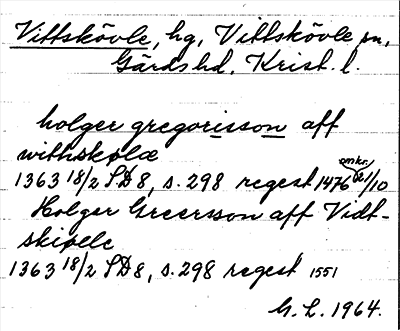 Vittskövle, hg, Vittskövle sn,
Gärds hd. Krist. l.
holger gregorisson aff
withskølæ
1363 18/2 SD8, s. 298 regest 1476 omkr. 21/10
Holger Greersson aff Vidt-
skiøele
1363 18/2 SD8, s. 298 regest 1551
G. L. 1964.